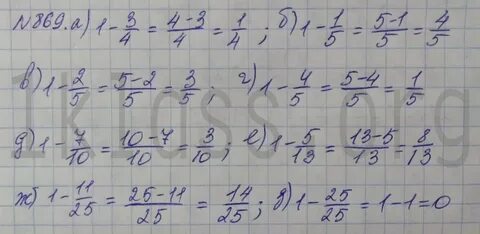 №869. а) 1 - 3/4 = (4-3)/4 = 1/4; б) 1 - 1/5 = (5-1)/5 = 4/5
в) 1 - 2/5 = (5-2)/5 = 3/5; г) 1 - 4/5 = (5-4)/5 = 1/5
д) 1 - 7/10 = (10-7)/10 = 3/10; е) 1 - 5/13 = (13-5)/13 = 8/13
ж) 1 - 11/25 = (25-11)/25 = 14/25; з) 1 - 25/25 = 1-1=0
1klass.org